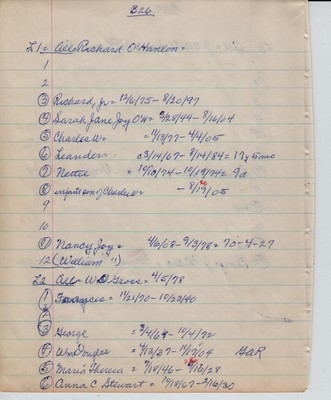 B26
L1 = All Richard O'Hanlon =
1
2
③ Richard, Jr = 12/6/75 - 8/20/97
④ Sarah Jane Joy O'H = 3/28/49 - 7/16/04
⑤ Charles W = 11/13/77 - 4/4/05
⑥ Leander - c3/14/67 - 8/14/84 = 17y 5mo
⑦ Nettie = 10/10/74 - 10/19/74 = 9d
⑧ infant son of Charles = - 8/19/05
9
10
⑪ Nancy Joy = 4/6/08 - 9/3/78 = 70-4-27
12 (William ")
L2 All W D Gross = 4/5/78
① Frances = 11/21/70 - 10/23/40
②
③ George = 3/4/69 - 10/4/72
④ Wm Douglas = 4/13/37 - 11/17/04 GAR
⑤ Maria Theresa = 7/18/46 - 7/16/28
⑥ Anna C. Stewart = 10/18/67 - 2/16/30